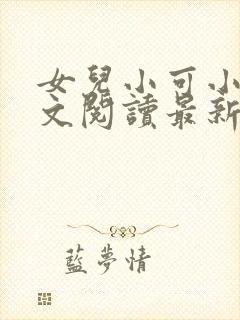 女兒小可小
文閱讀最新
藍夢情